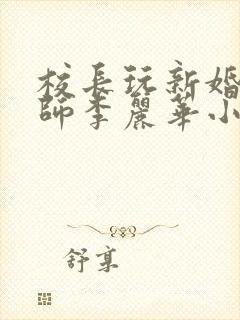 校長玩新婚
師李麗華小
舒享